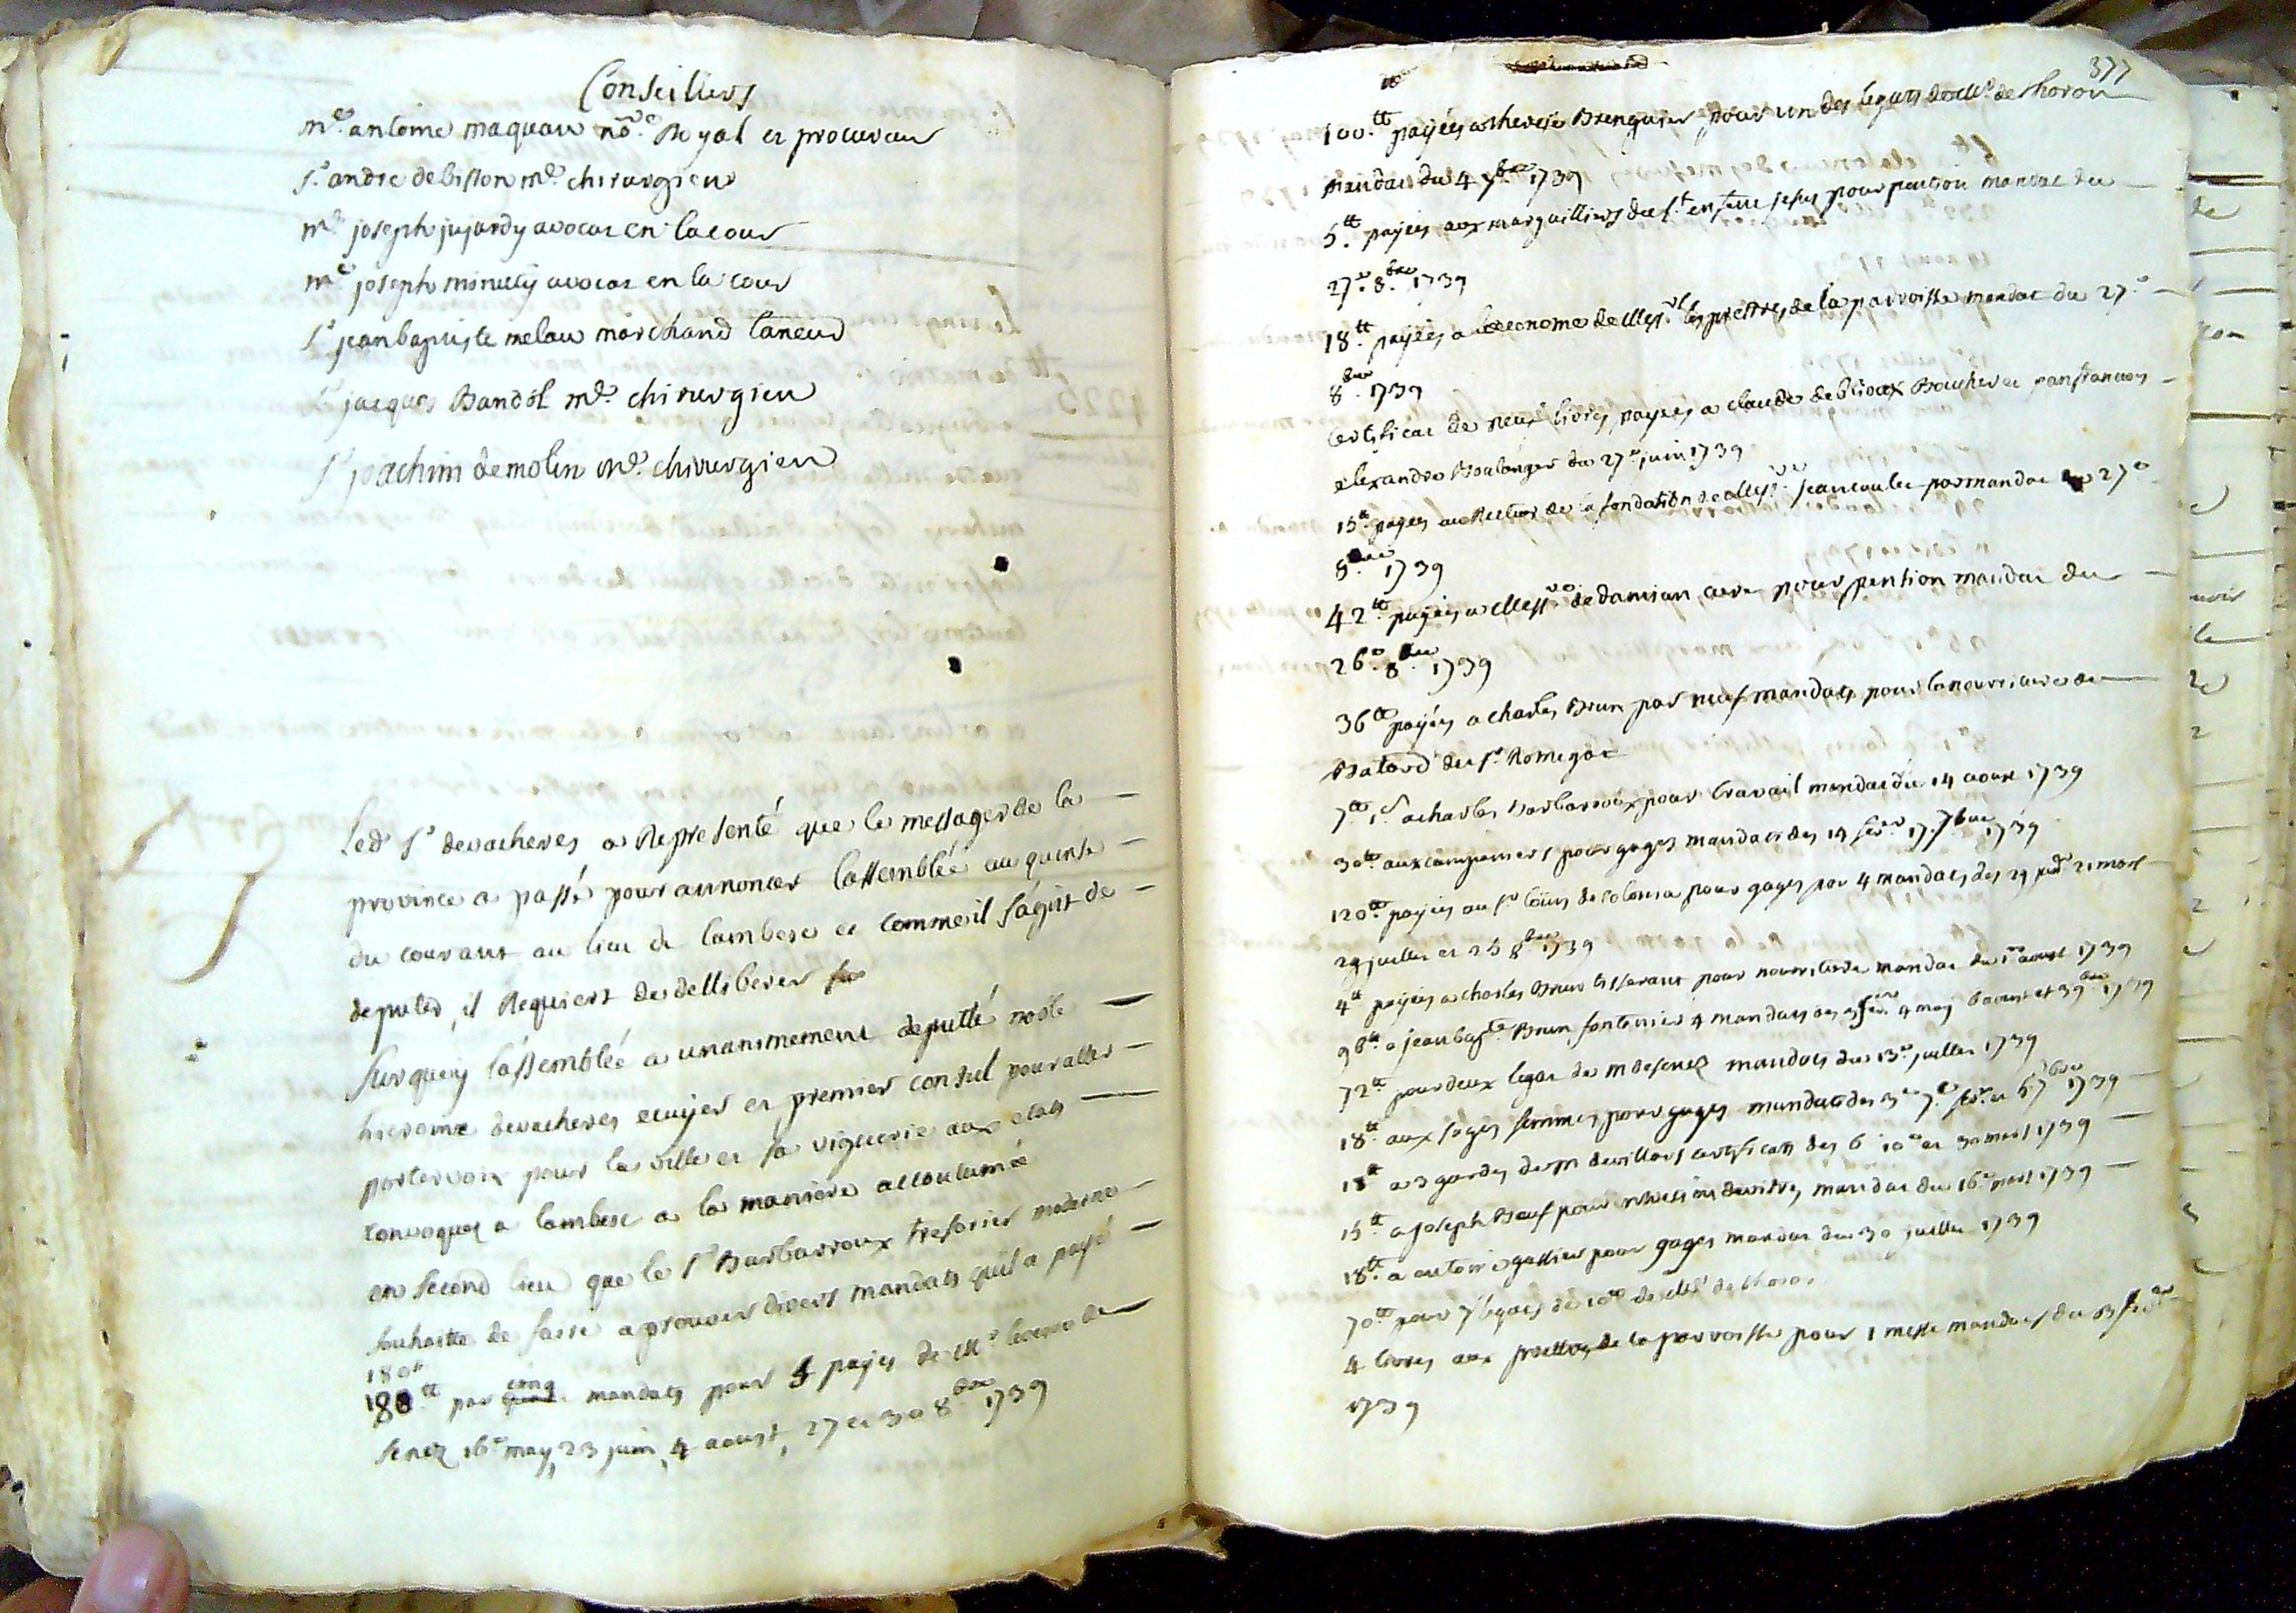 Conseillers
me. antoine maquan nore. Royal et procureur
sr. andre debisson me. chirurgien
me. joseph jujardy avocat en la cour
me. joseph minuty avocat en la cour
sr. jean baptiste melan marchand taneur
sr. jacques Bandol me. chirurgien
sr. joachim demolin me. chirurgien
Led. sr. devacheres a Representé que le messager de la
province a passé pour annoncer lassemblée au quinse
du courant au lieu de lambesc et comme il sagit de
deputer, il Requiert de delliberer
sur quoy lassemblée a unanimement deputté noble
hierome devacheres ecuyer et premier consul pour aller
porter voix pour la ville et sa viguerie aux etats
convoqués a lambesc a la maniere accoutumée
en second lieu que le sr. Barbarroux tresorier moderne
souhaitte de faire aprouver divers mandats quil a payé
180tt
180tt par cinq mandats pour 5 payes de Mr. leveque de
senez 16e may, 23 juin, 4 aoust, 27 et 30 8bre 1739
377
100tt payées a therese Brenguier pour un des legats de Mr. de thoron
mandat du 4 7bre 1739
5tt payées aux marguilliers du st. enfant jesus pour pention mandat du
27e 8bre 1739
18tt payées a leconome de Messrs. les prettres de la parroisse mandat du 27e
8bre 1739
Certificat de neuf livres payées a claude deblioux Boucher et jean francois
alexandre Boulanger du 27e juin 1739
15tt payées au Recteur de la fondation de Messre. jean caulet par mandat du 27e
8bre 1739
42tt payées a Messre. de damian curé pour pention mandat du
26e 8bre 1739
36tt payées a charles Brun par neuf mandats pour la nourriture du
Batard du sr. Romegat
7tt 1s a charles Barbarroux pour travail mandat du 14 aoust 1739
30tt aux campaniers pour gages mandats des 14 fevr. 17 7bre 1739
120tt payées au sr. louis de colonia pour gages par 4 mandats des 29 janr. 21 mars
29 juillet et 25 8bre 1739
4tt payées a charles Brun tisserant pour nourriture mandat du 1er aoust 1739
96tt a jean bapte. Brun fontenier 4 mandats des fevr. 4 may 6 aoust et 3 9bre 1739
72tt pour deux legats de m de senez mandats du 13e juillet 1739
18tt aux sages femmes pour gages mandats des 3e 7e fevr. et 6 7bre 1739
18tt a 3 gardes de m devillars certificats des 6 10e et 30 mars 1739
15tt a joseph Bauf pour de vitres mandat du 16e mars 1739
18tt a antoine gassier pour gages mandat du 30 juillet 1739
70tt pour 7 legats de 10tt de Mr. de thoron
4 livres aux prettres de la parroisse pour 1 messe mandat du
1739